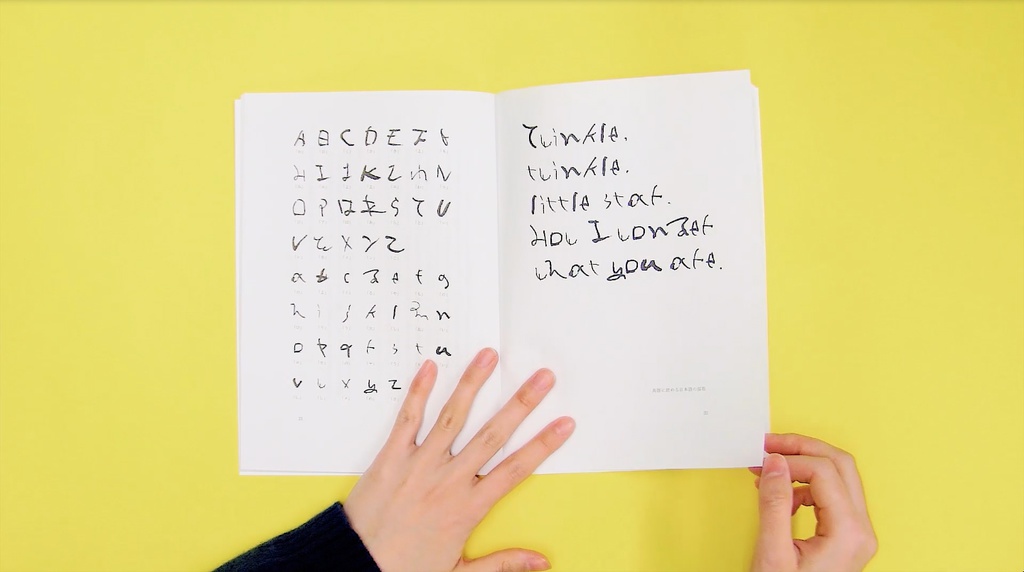 A B C D E F G
H I J K L M N
O P Q R S T U
V W X Y Z
a b c d e f g
h i j k l m n
o p q r s t u
v w x y z
Twinkle.
twinkle.
little star.
How I wonder
what you are.